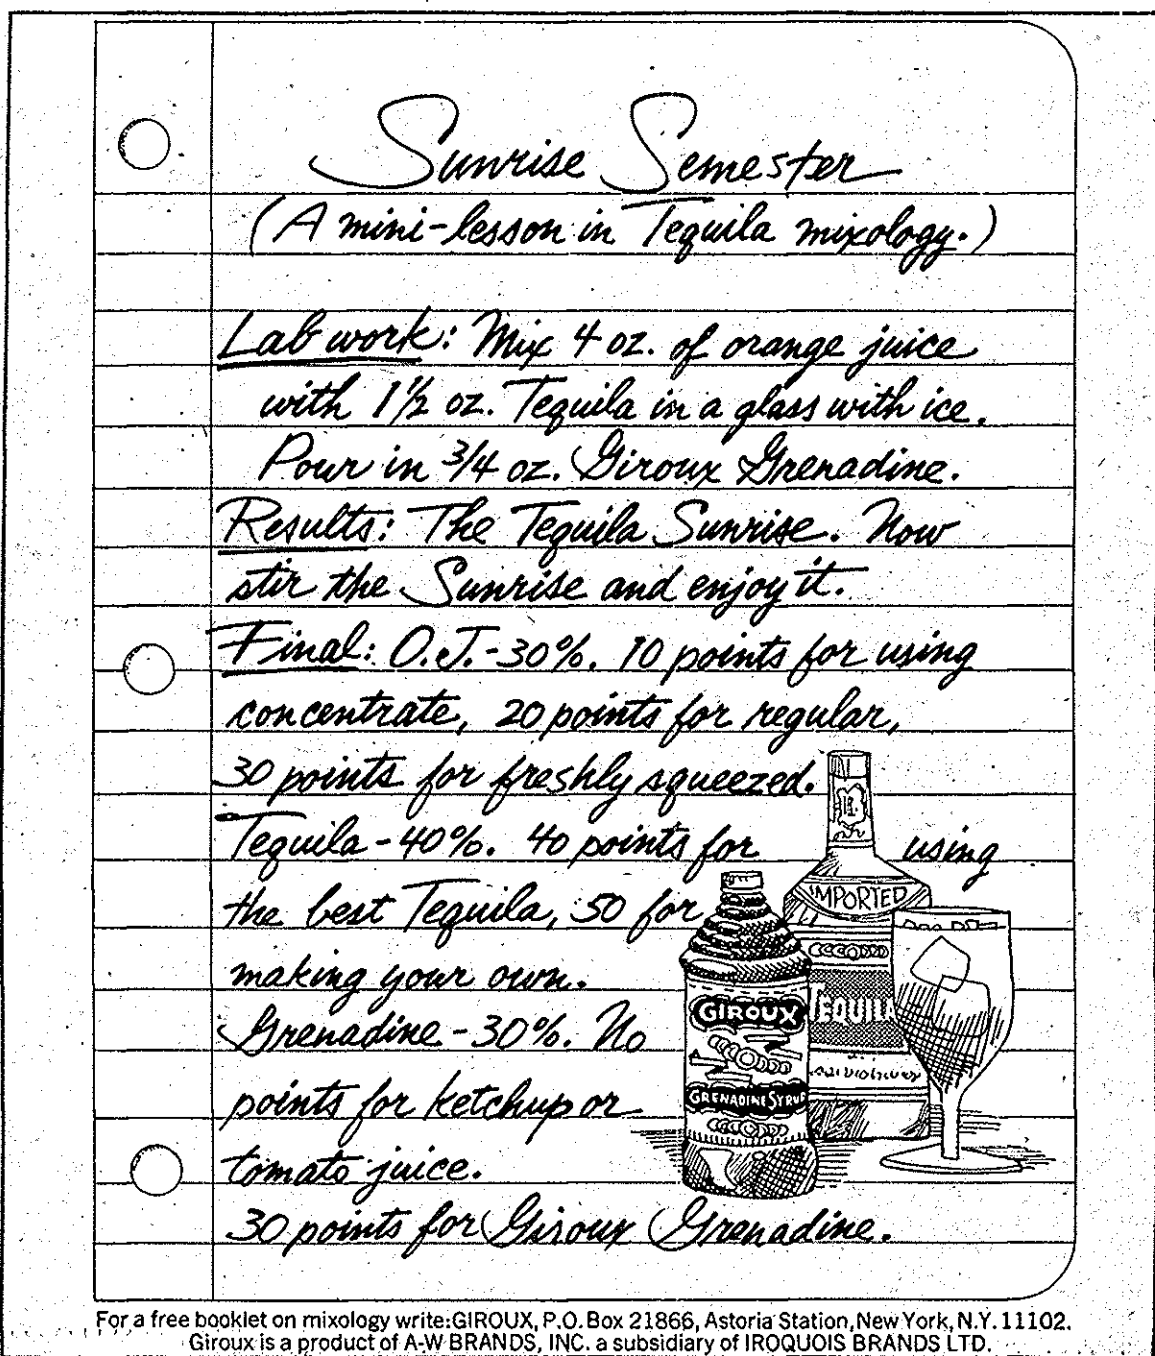 Sunrise Semester
(A mini-lesson in Tequila mixology.)
Lab work: Mix 4 oz. of orange juice
with 1½ oz. Tequila in a glass with ice.
Pour in ¾ oz. Giroux Grenadine.
Results: The Tequila Sunrise. Now
stir the Sunrise and enjoy it.
Final: O.J.-30%. 10 points for using
concentrate, 20 points for regular,
30 points for freshly squeezed.
Tequila-40%. 40 points for using
the best Tequila, 50 for
making your own.
Grenadine-30%. No
points for ketchup or
tomato juice.
30 points for Giroux Grenadine.
IMPORTED
TEQUILA
GIROUX
GRENADINE SYRUP
For a free booklet on mixology write: GIROUX, P.O. Box 21866, Astoria Station, New York, N.Y. 11102.
Giroux is a product of A-W BRANDS, INC. a subsidiary of IROQUOIS BRANDS LTD.